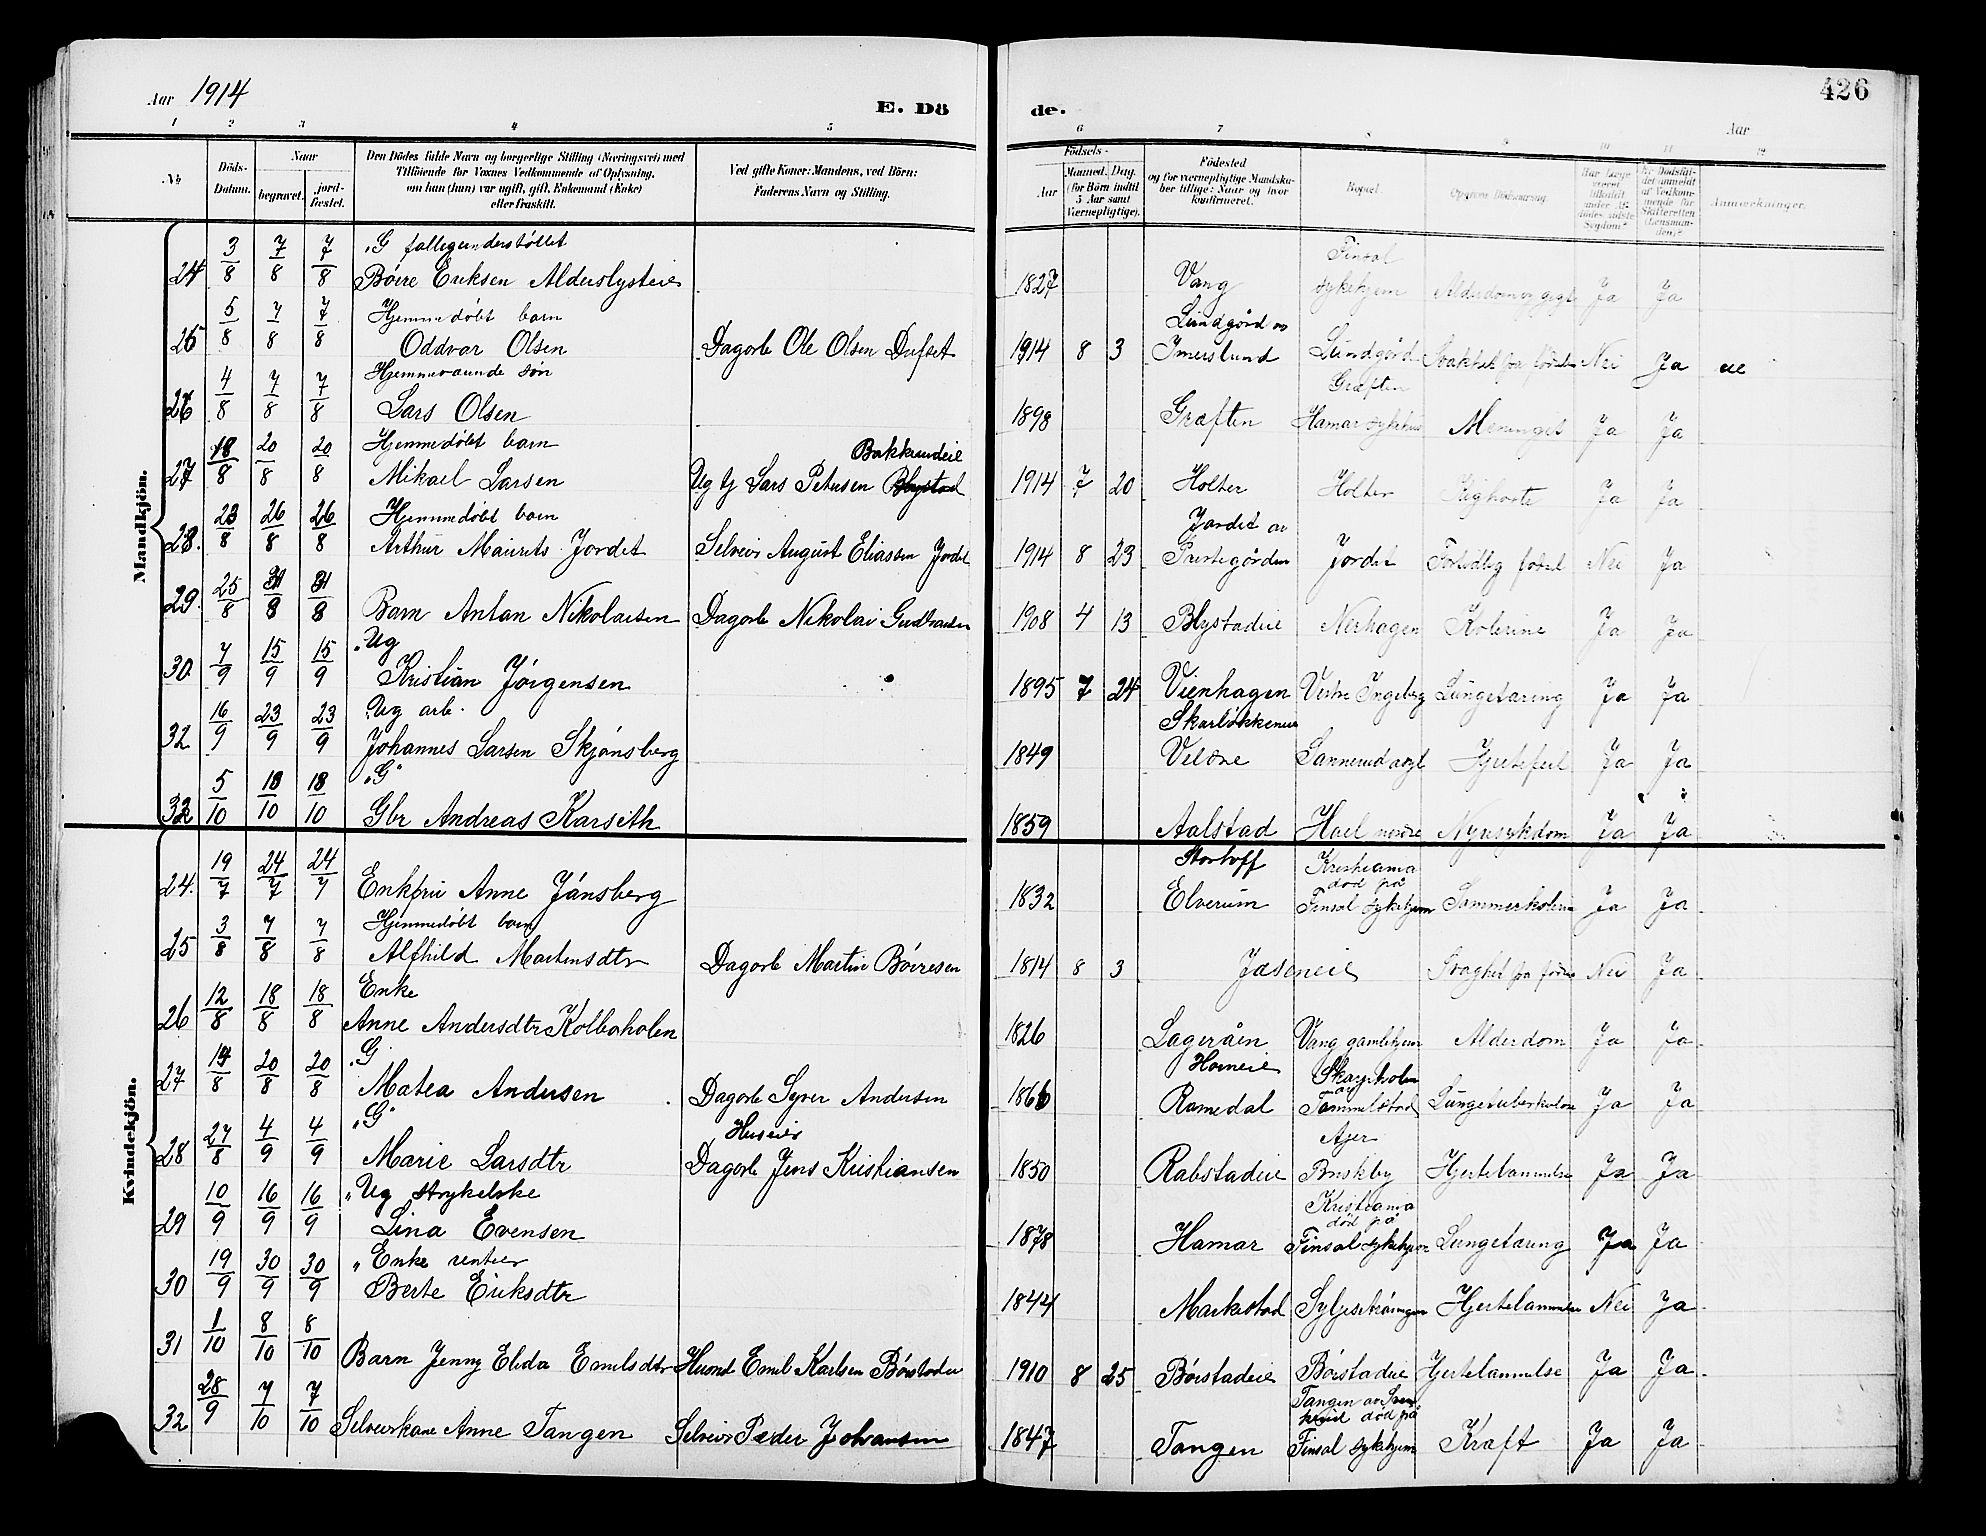 426
Aar 1914
E. Dö
de.
Aar
1 2 3 4 5
6 7 9 10 11 12
No
Döds-Datum.
Naar
begravet.
jord-fæstet.
Den Dödes fulde Navn og borgerlige Stilling (Næringsvei) med
Tilföiende for Voxnes Vedkommende af Oplysning,
om han (hun) var ugift, gift, Enkemand (Enke)
eller fraskilt.
Ved gifte Koner: Mandens, ved Börn:
Faderens Navn og Stilling.
Fødsels-
Aar
Maaned. Dag.
(for Börn indtil
5 Aar samt
Værnepligtige).
Födested
og for værnepligtige Mandskaber tillige: Naar og hvor
konfirmeret.
Bopæl.
Opgiven Dödsaarsag.
Anmærkninger.
Mandkjön.
24 3/8 7/8 7/8 "G fattigunderstøttet
Böire Eriksen Alderslysteie 1827 Vang Finsal sykehjem Alderdom og gigt Ja Ja
25 5/8 7/8 7/8 Hjemmedøbt barn
Oddvar Olsen Dagarb Ole Olsen Dufset 1914 8 3 Lundgård av Imerslund Lundgård Svakhet fra fødselen Nei Ja
26 4/8 7/8 7/8 Hjemmeværende søn
Lars Olsen 1898 Græften Græften Hamar sykehus Meningit Ja Ja
27 18/8 20/8 20/8 Hjemmedøbt barn
Mikael Larsen Ug tj Lars Petersen Blystad Bakkerudeie 1914 7 20 Holter Holter Kighoste Ja Ja
28. 23/8 26/8 26/8 Hjemmedøbt barn
Arthur Maurits Jordet Selveier August Eliassen Jordet 1914 8 23 Jordet av Prestegården Jordet Fortidlig fødsel Nei Ja
29. 25/8 31/8 31/8 Barn Antan Nikolaisen Dagarb Nikolai Gudbrandsen 1908 4 13 Blystadeie Nerhagen Kolerine Ja Ja
30. 7/9 15/9 15/9 "Ug
Kristian Jörgensen 1895 7 24 Vienhagen Vestre Ingeberg Lungetæring Ja Ja
32 16/9 23/9 23/9 "Ug arb.
Johannes Larsen Skjönsberg 1849 Skarløkkeneie Veldre Sannerud Hjertefeil Ja Ja
32 5/10 18/10 18/10 "G"
Gbr Andreas Karseth 1859 Aalstad Hoel nordre Nyresykdom Ja Ja
Kvindekjön.
24. 19/7 24/7 24/7 Enkefru Anne Jönsberg 1832 Storhoff Elverum Kristiania død på Finsal sykehjem Sommerkolerin Ja Ja
25 3/8 7/8 7/8 Hjemmedøbt barn
Alfhild Martinsdtr Dagarb Martin Böiresen 1814 8 3 Jøseneie Svaghet fra fødsel Nei Ja
26 12/8 18/8 18/8 Enke
Anne Andersdtr Kolboholen 1826 Lageråen Vang gamlehjem Alderdom Ja Ja
27 14/8 20/8 20/8 "G
Matea Andersen Dagarb Syver Andersen 1866 Horneie Romedal Skarpholen av Tommelstad Lungetuberkulose Ja Ja
28 27/8 4/9 4/9 "G"
Marie Larsdtr Huseier Dagarb Jens Kristiansen 1850 Rabstadeie Ajer Buskby Hjertelammelse Ja Ja
29 10/9 16/9 16/9 "Ug strykerske
Lina Evensen 1878 Hamar Kristiania død på Finsal sykehjem Lungetæring Ja Ja
30 19/9 30/9 30/9 "Enke rentier
Berte Eriksdtr 1844 Markestad Hjertelammelse Nei Ja
31 1/10 8/10 8/10 Barn Jenny Elida Emilsdtr Husmd Emil Karlsen Börstadeie 1910 8 25 Börstadeie Börstadeie Hjertelammelse Ja Ja
32 28/9 7/10 7/10 Selveierkone Anne Tangen Selveier Peder Johansen 1847 Tangen Tangen av død på Finsal sykehjem Kræft Ja Ja